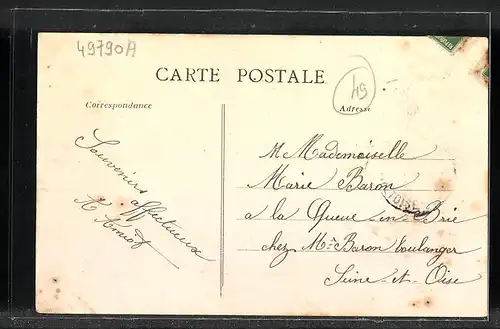 49790A
CARTE POSTALE
49
Correspondance
Adresse
Souvenirs
affectueux
Mademoiselle
Marie Baron
a la Queue en Brie
chez Mr Baron boulanger
Seine-et-Oise